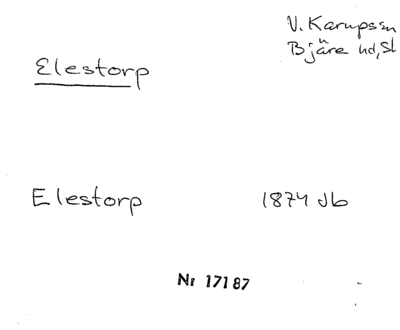 V. Karups sn
Bjäre hd, Sk
Elestorp
Elestorp 1874 Jb
Nr 17187